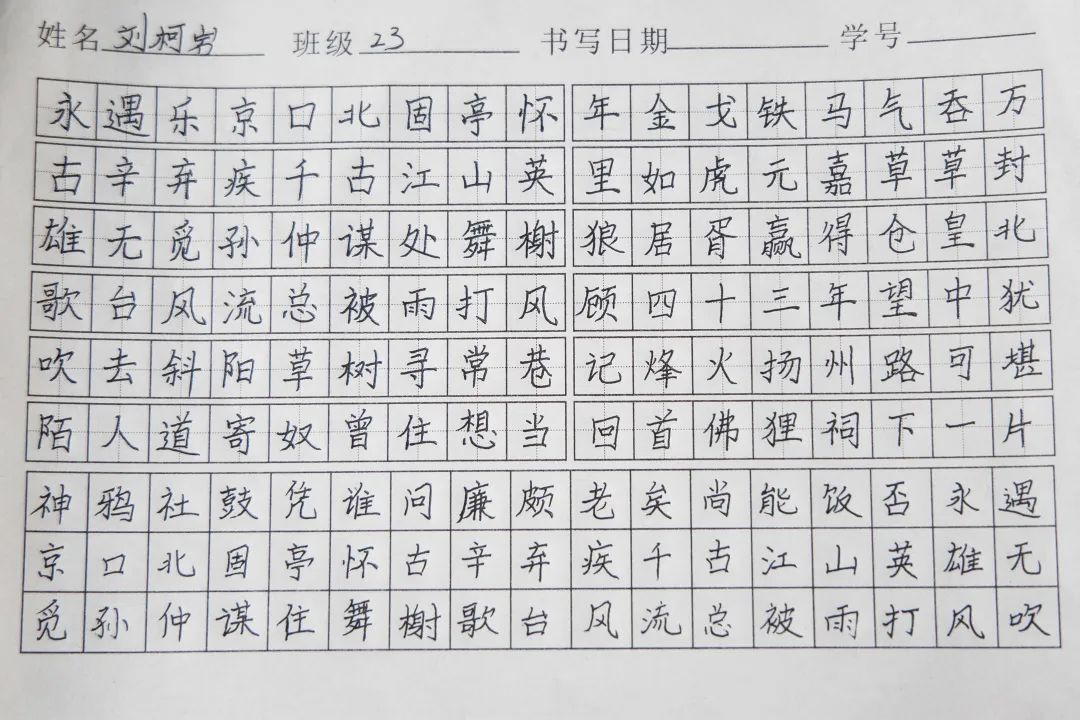 姓名 刘柯岩 班级 23 书写日期 学号
永遇乐京口北固亭怀年金戈铁马气吞万
古辛弃疾千古江山英里如虎元嘉草草封
雄无觅孙仲谋处舞榭狼居胥赢得仓皇北
歌台风流总被雨打风顾四十三年望中犹
吹去斜阳草树寻常巷记烽火扬州路可堪
陌人道寄奴曾住想当回首佛狸祠下一片
神鸦社鼓凭谁问廉颇老矣尚能饭否永遇
京口北固亭怀古辛弃疾千古江山英雄无
觅孙仲谋住舞榭歌台风流总被雨打风吹